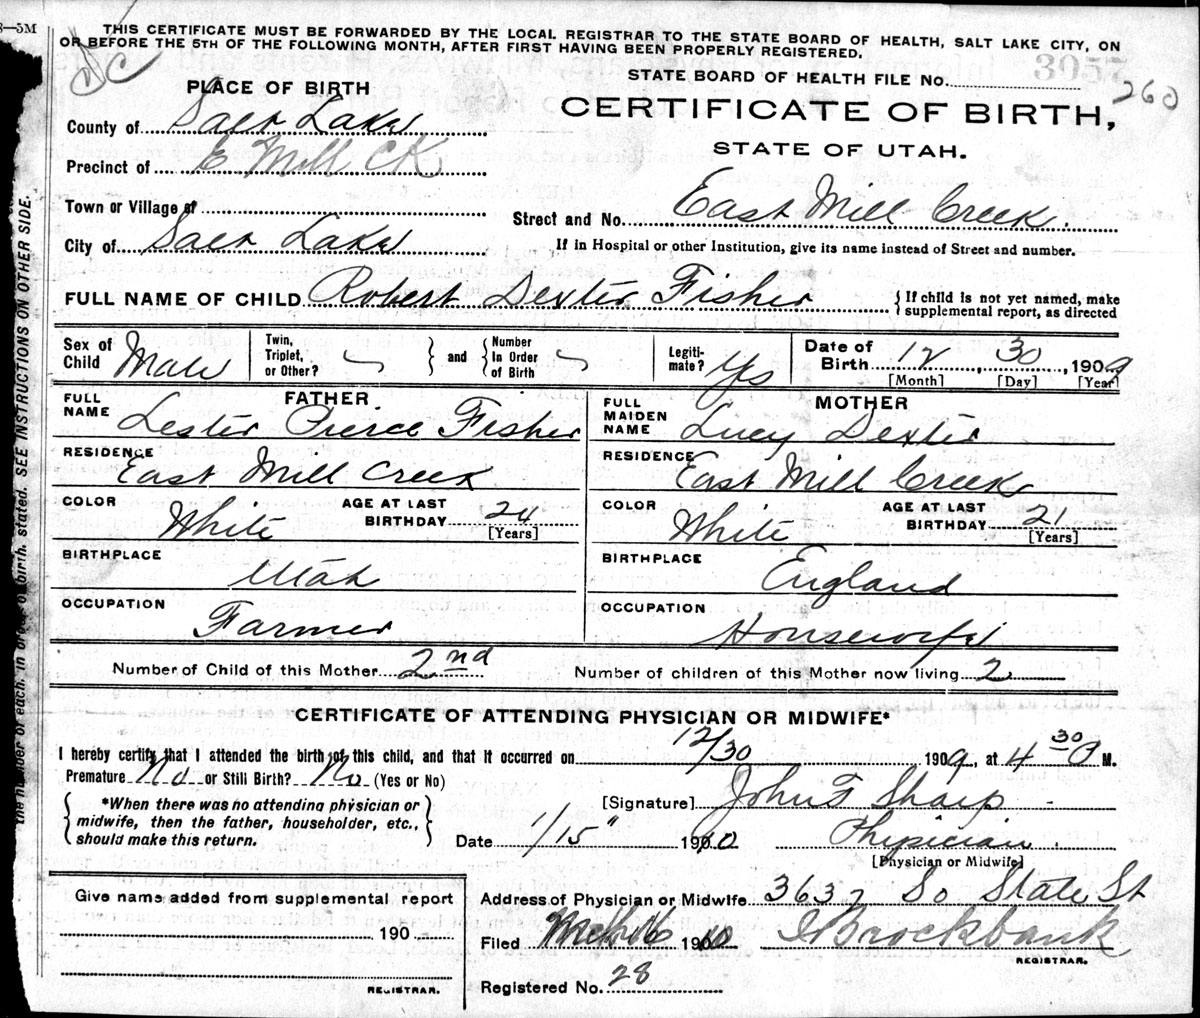 8—5M
THIS CERTIFICATE MUST BE FORWARDED BY THE LOCAL REGISTRAR TO THE STATE BOARD OF HEALTH, SALT LAKE CITY, ON
OR BEFORE THE 5TH OF THE FOLLOWING MONTH, AFTER FIRST HAVING BEEN PROPERLY REGISTERED.
STATE BOARD OF HEALTH FILE No.
260
CERTIFICATE OF BIRTH,
STATE OF UTAH.
PLACE OF BIRTH
County of Salt Lake
Precinct of E Mill CK
Town or Village of
Street and No. East Mill Creek.
City of Salt Lake
If in Hospital or other Institution, give its name instead of Street and number.
FULL NAME OF CHILD Robert Dexter Fisher
{ If child is not yet named, make
supplemental report, as directed
Sex of Child Male
Twin, Triplet, or Other?
} and {
Number In Order of Birth
Legiti-mate? Yes
Date of Birth 12, 30, 1909
[Month] [Day] [Year]
FATHER
FULL NAME Lester Pierce Fisher
RESIDENCE East Mill Creek
COLOR White
AGE AT LAST BIRTHDAY 24
[Years]
BIRTHPLACE Utah
OCCUPATION Farmer
MOTHER
FULL MAIDEN NAME Lucy Dexter
RESIDENCE East Mill Creek
COLOR White
AGE AT LAST BIRTHDAY 21
[Years]
BIRTHPLACE England
OCCUPATION Housewife
Number of Child of this Mother 2nd
Number of children of this Mother now living 2
CERTIFICATE OF ATTENDING PHYSICIAN OR MIDWIFE*
I hereby certify that I attended the birth of this child, and that it occurred on 12/30 1909, at 4 30 P M.
Premature No or Still Birth? No (Yes or No)
{ *When there was no attending physician or
midwife, then the father, householder, etc.,
should make this return. }
[Signature] John F Sharp
Date 1/15" 1910
Physician.
[Physician or Midwife]
Give name added from supplemental report
190
REGISTRAR.
Address of Physician or Midwife 3637 So State St
Filed 1910 Brockbank
REGISTRAR.
Registered No. 28
the number of each, in order of birth, stated. SEE INSTRUCTIONS ON OTHER SIDE.